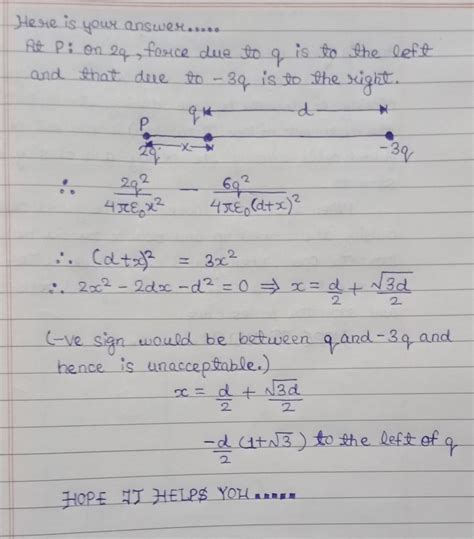 Here is your answer.....
At P: on 2q, force due to q is to the left
and that due to -3q is to the right.
q d
P
2q x -3q
∴ 2q²/4πε₀x² - 6q²/4πε₀(d+x)²
∴ (d+x)² = 3x²
∴ 2x² - 2dx - d² = 0 ⇒ x = d/2 + √3d/2
(-ve sign would be between q and -3q and
hence is unacceptable.)
x = d/2 + √3d/2
-d/2 (1+√3) to the left of q
HOPE IT HELPS YOU.....